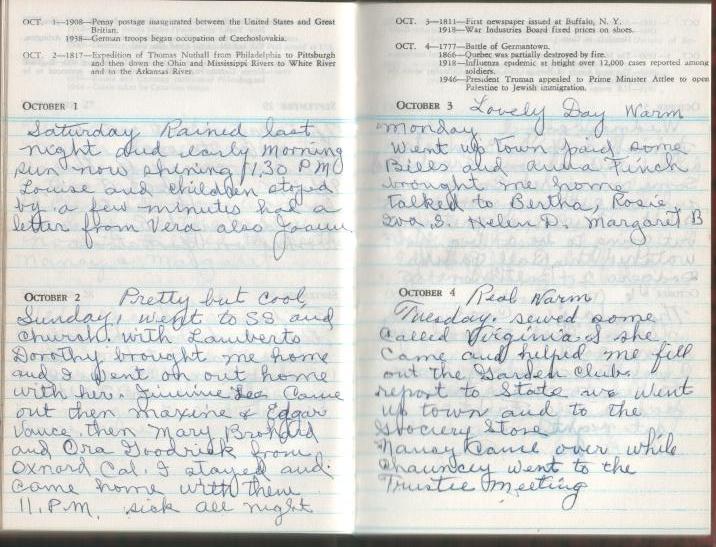 OCT. 1—1908—Penny postage inaugurated between the United States and Great
Britian.
1938—German troops began occupation of Czechoslovakia.
OCT. 2—1817—Expedition of Thomas Nuthall from Philadelphia to Pittsburgh
and then down the Ohio and Mississippi Rivers to White River
and to the Arkansas River.
OCTOBER 1
Saturday Rained last
night and early morning
sun now shining 1,30 P.M.
Louise and children stoped
by a few minutes had a
letter from Vera also Joann
OCTOBER 2 Pretty but cool,
Sunday, went to SS and
church. with Lamberts
Dorothy brought me home
and I went on out home
with her. Jimmie Lee Came
out then Maxine & Edgar
Vance, then Mary Brohard
and Ora Goodrick from
Oxnord Cal. I stayed and
came home with them
11, P.M. sick all night
OCT. 3—1811—First newspaper issued at Buffalo, N. Y.
1918—War Industries Board fixed prices on shoes.
OCT. 4—1777—Battle of Germantown.
1866—Quebec was partially destroyed by fire.
1918—Influenza epidemic at height over 12,000 cases reported among
soldiers.
1946—President Truman appealed to Prime Minister Attlee to open
Palestine to Jewish immigration.
OCTOBER 3 Lovely Day Warm
Monday
Went up town paid some
Bills and anna Finch
brought me home
talked to Bertha, Rosie,
Eva, S. Helen D. Margaret B
OCTOBER 4 Real Warm
Tuesday. sewed some
Called Virginia. S she
Came and helped me fill
out the Garden Clubs
report to State we went
up town and to the
Grocery Store
Nancy Came over while
Chauncey went to the
Trustee Meeting